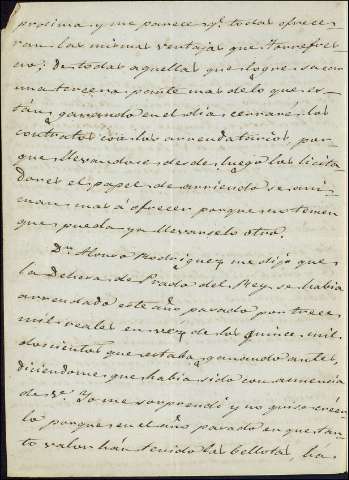 proxima y me parece q.e todas ofrece
ran las mismas ventajas que Torrefres
no; de todas aquellas que logre sacar
una tercera parte mas de lo que es-
tan ganando en el dia cerraré los
contratos con los arrendatarios, por
que llevandose desde luego los licita
dores el papel de arriendo se ani
man mas á ofrecer porque no temen
que pueda ya llevarselo otro.
Dn. Alonso Rodriguez me dijo que
la Dehesa de Prado del Rey se habia
arrendado este año pasado por trece
mil reales en vez de los quince mil
doscientos que estaba ganando antes
diciendome que habia sido con anuencia
de V.e Yo me sorprendí y no quise creér
lo porque en el año pasado en que tan
to valor hán tenido las bellotas, ha